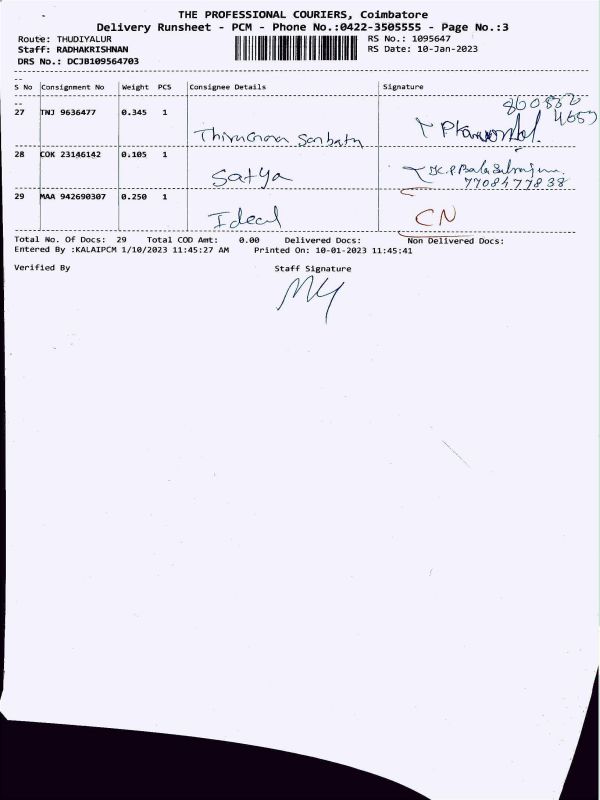 THE PROFESSIONAL COURIERS, Coimbatore
Delivery Runsheet - PCM - Phone No.:0422-3505555 - Page No.:3
Route: THUDIYALUR RS No.: 1095647
Staff: RADHAKRISHNAN RS Date: 10-Jan-2023
DRS No.: DCJB109564703
S No Consignment No Weight PCS Consignee Details Signature
27 TNJ 9636477 0.345 1
860852
4653
28 COK 23146142 0.105 1
Satya
7708477838
29 MAA 942690307 0.250 1
Ideal CN
Total No. Of Docs: 29 Total COD Amt: 0.00 Delivered Docs: Non Delivered Docs:
Entered By :KALAIPCM 1/10/2023 11:45:27 AM Printed On: 10-01-2023 11:45:41
Verified By Staff Signature